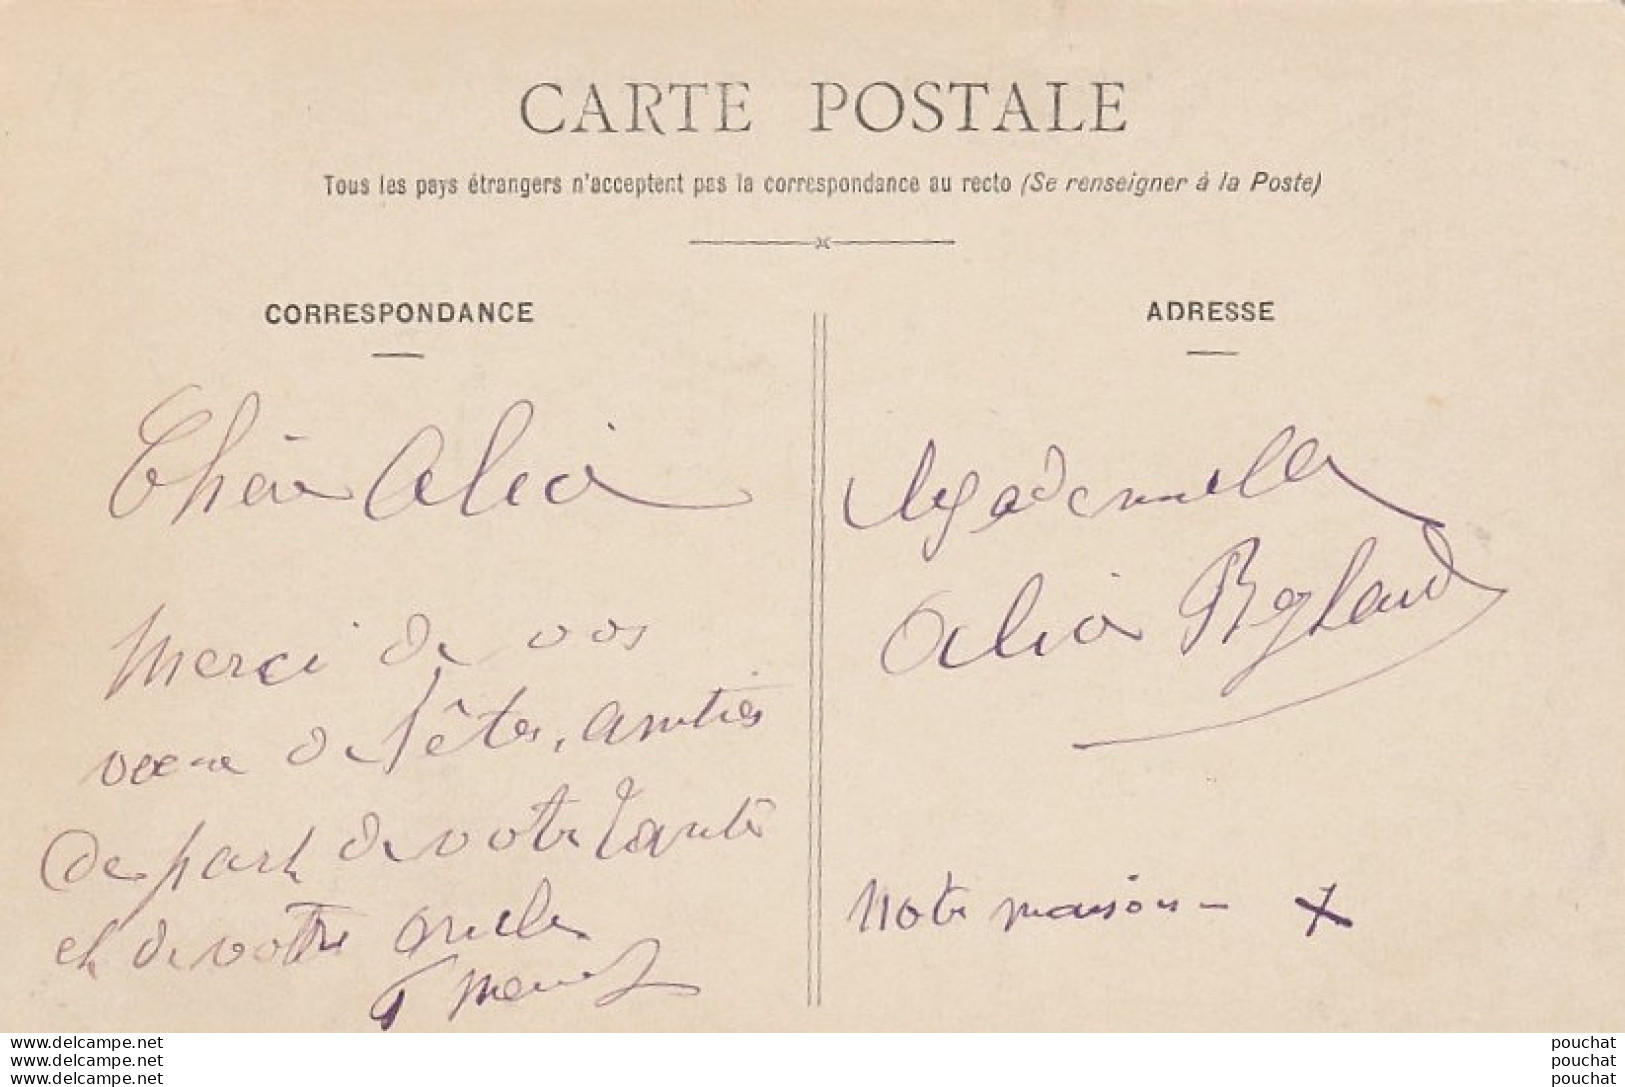 CARTE POSTALE
Tous les pays étrangers n'acceptent pas la correspondance au recto (Se renseigner à la Poste)
CORRESPONDANCE
ADRESSE
Chère Alice
Merci de vos
vœux de fêtes, amitiés
de part de votre tante
et de votre oncle
Mademoiselle
Alice
Notre maison - X
www.delcampe.net
www.delcampe.net
www.delcampe.net
pouchat
pouchat
pouchat